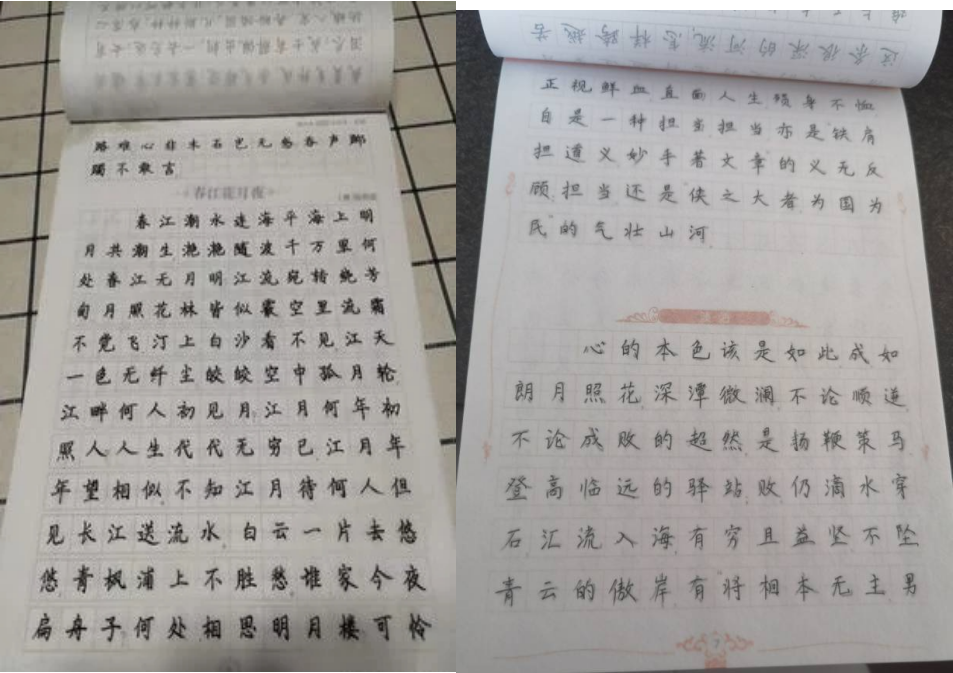 路难心非木石岂无感吞声踯
躅不敢言
春江花月夜
春江潮水连海平海上明
月共潮生滟滟随波千万里何
处春江无月明江流宛转绕芳
甸月照花林皆似霰空里流霜
不觉飞汀上白沙看不见江天
一色无纤尘皎皎空中孤月轮
江畔何人初见月江月何年初
照人人生代代无穷已江月年
年望相似不知江月待何人但
见长江送流水白云一片去悠
悠青枫浦上不胜愁谁家今夜
扁舟子何处相思明月楼可怜
这条很深的河流怎样跨越去
正视鲜血直面人生殒身不恤
自是一种担当担当亦是铁肩
担道义妙手著文章的义无反
顾担当还是侠之大者为国为
民的气壮山河
心的本色该是如此成如
朗月照花深潭微澜不论顺逆
不论成败的超然是扬鞭策马
登高临远的驿站败仍滴水穿
石汇流入海有穷且益坚不坠
青云的傲岸有将相本无主男